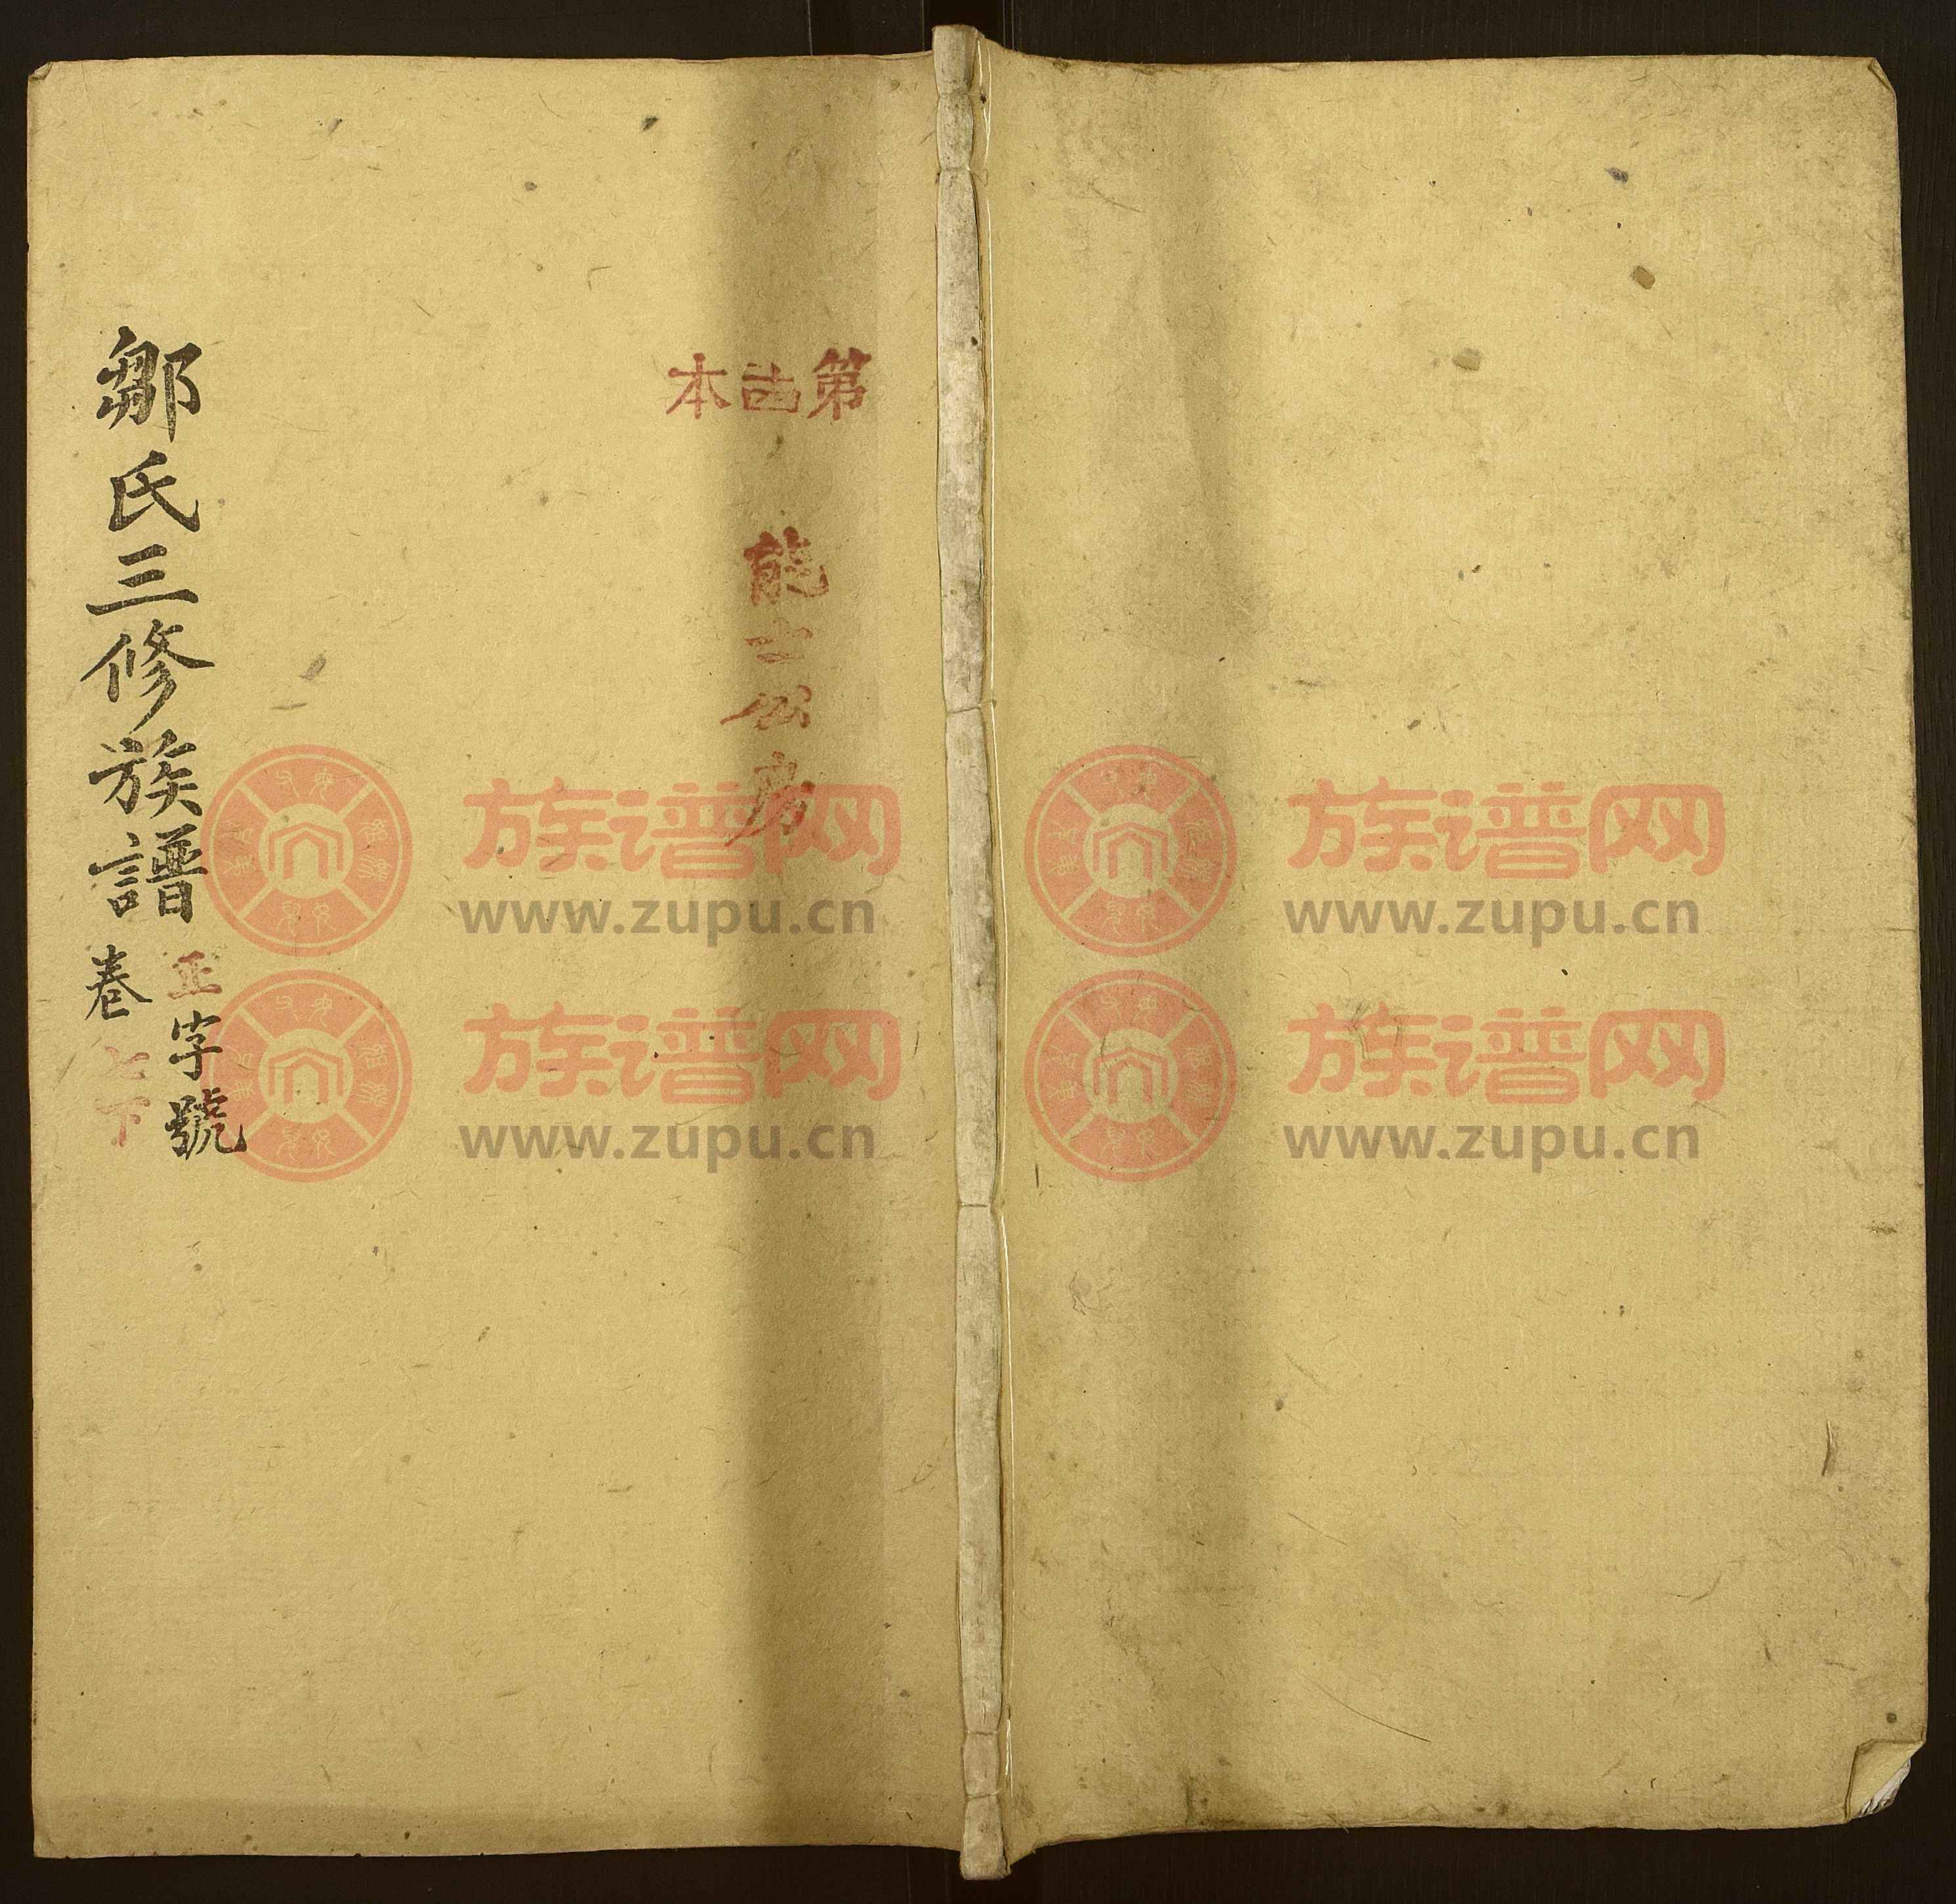 鄒氏三修族譜
正字號
卷七下
第
本
能士公房
族谱网
www.zupu.cn
族谱网
www.zupu.cn
族谱网
www.zupu.cn
族谱网
www.zupu.cn